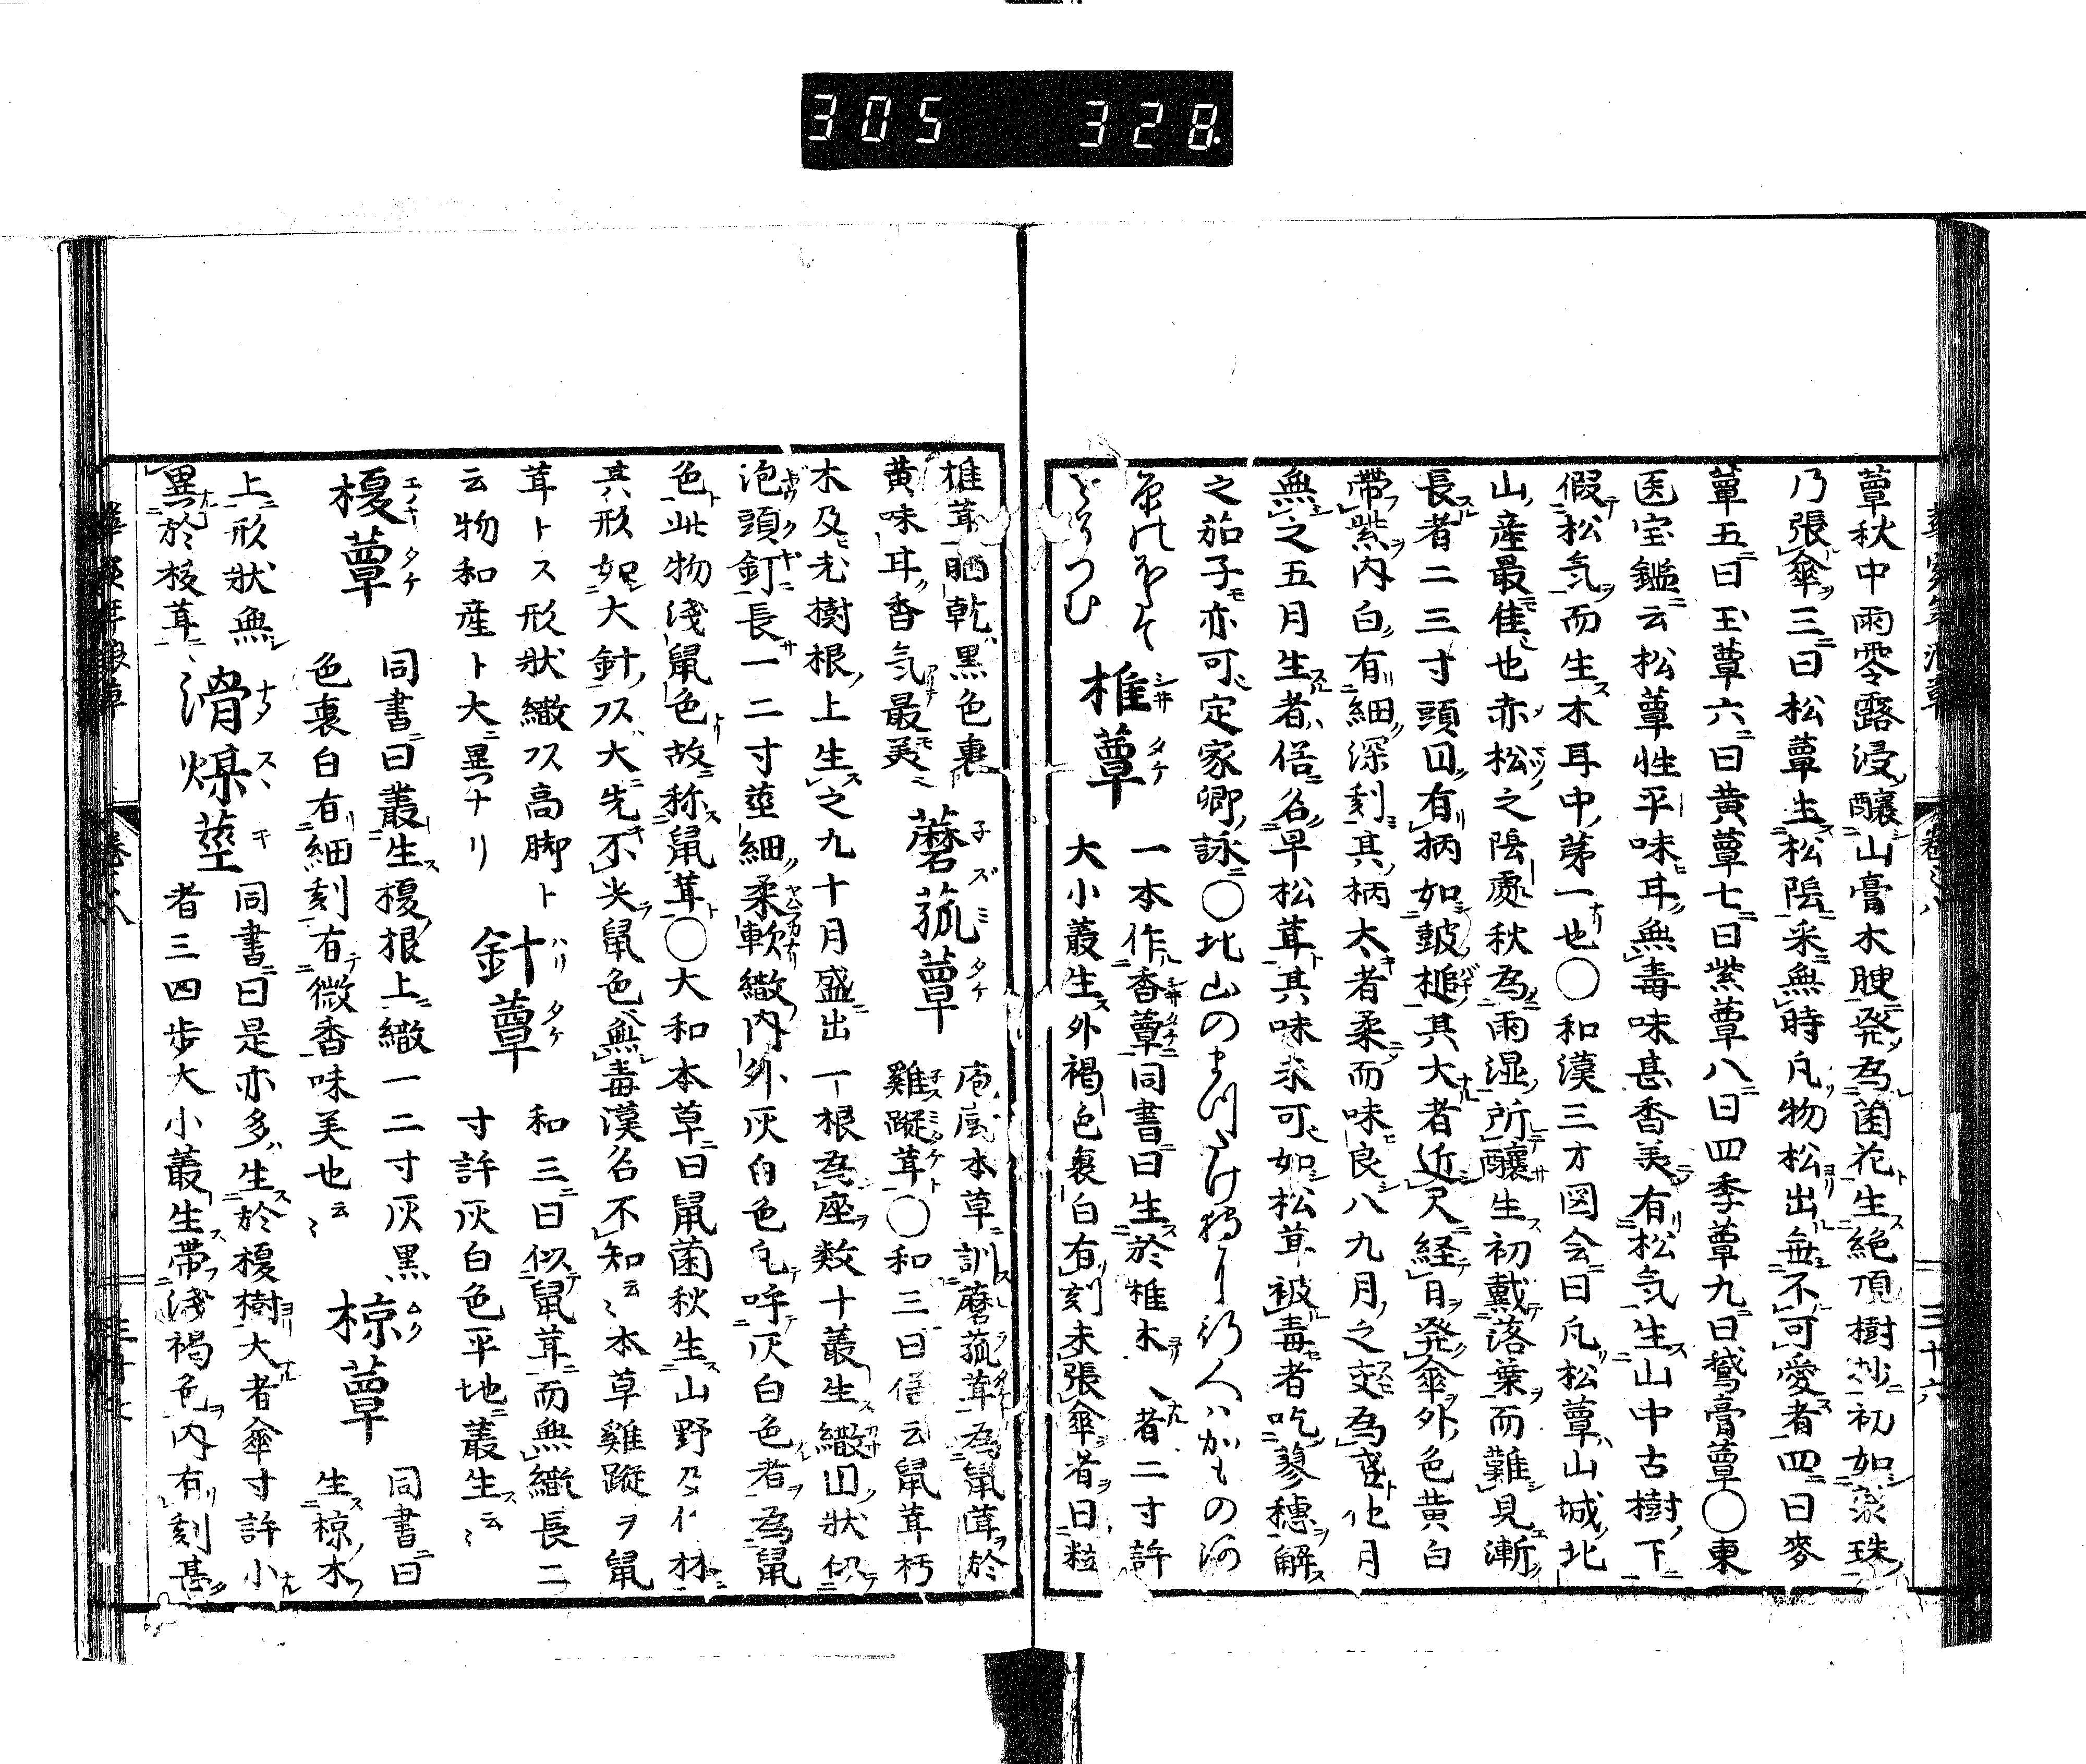 305 328
三十六
蕈秋中雨零露浸釀山膏木腴発為菌花生絶頂樹杪初如蕊珠
乃張傘三曰松蕈生松陰采無時凡物松出無不可愛者四曰麥
蕈五曰玉蕈六曰黄蕈七曰紫蕈八曰四季蕈九曰鵞膏蕈〇東
医宝鑑云松蕈性平味耳無毒味甚香美有松気生山中古樹下
假松気而生木耳中第一也〇和漢三才図会曰凡松蕈山城北
山産最隹也赤松之陰處秋為雨湿所釀生初戴落葉而難見漸
長者二三寸頭囙有柄如鼓槌其大者近尺経日発傘外色黄白
帶紫内白有細深刻其柄太者柔而味良八九月之交為盛他月
無之五月生者俗名早松茸其味亦可如松茸被毒者吃蓼穗解
之茄子亦可定家卿詠〇北山のまつたけ
椎蕈 シ井タケ
一本作香蕈同書曰生於椎木者二寸許
大小叢生外褐色裏白有刻未張傘者曰粒
椎茸晒乾黒色裏
黄味耳香気最美
蘑菰蕈 子ズミタケ
本草訓蘑菰茸為鼠茸於
雞㙡茸〇和三曰俗云鼠茸朽
木及老樹根上生之九十月盛出一根為座数十叢生繖囙状似
泡頭釘長一二寸莖細柔軟繖内外灰白色乞呼灰白色者為鼠
色此物淺鼠色故称鼠茸〇大和本草曰鼠菌秋生山野及林
其形如大針大先不尖鼠色無毒漢名不知云〻本草雞㙡ヲ鼠
茸トス形状繖高脚ト
云物和産ト大異ナリ
針蕈 ハリタケ
和三曰似鼠茸而無繖長二
寸許灰白色平地叢生云〻
榎蕈 エノキタケ
同書曰叢生榎根上繖一二寸灰黒
色裏白有細刻有微香味美也云〻
椋蕈 ムク
同書曰
生椋木
上形状無
異於榎茸
滑煤莖 ナメススキ
同書曰是亦多生於榎樹大者傘寸許小
者三四歩大小叢生帶淺褐色内有刻甚